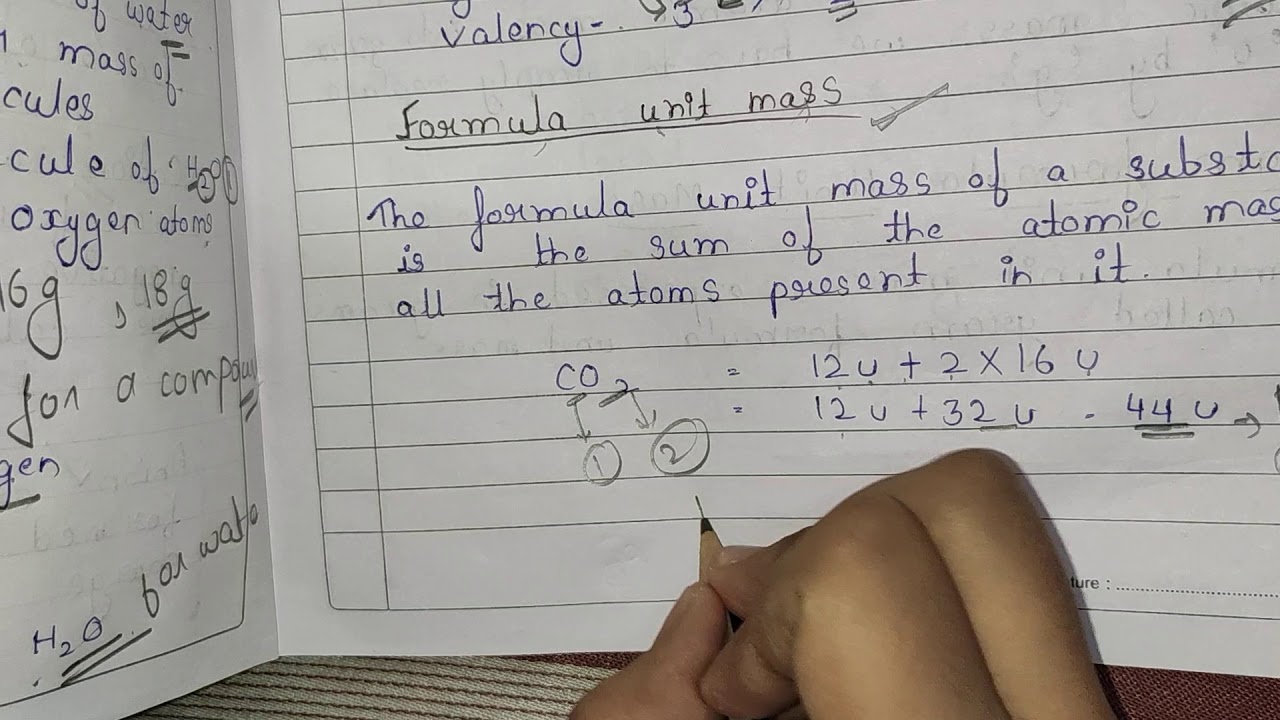 of water
mass of
cules
cule of H2O
oxygen atoms
16g , 18g
for a compou
gen
for wate
H2O
Valency - 3
Formula unit mass
The formula unit mass of a substa
is the sum of the atomic mas
all the atoms present in it.
CO2 = 12u + 2 X 16 u
= 12u + 32u - 44u →
1 2
ture : ....................